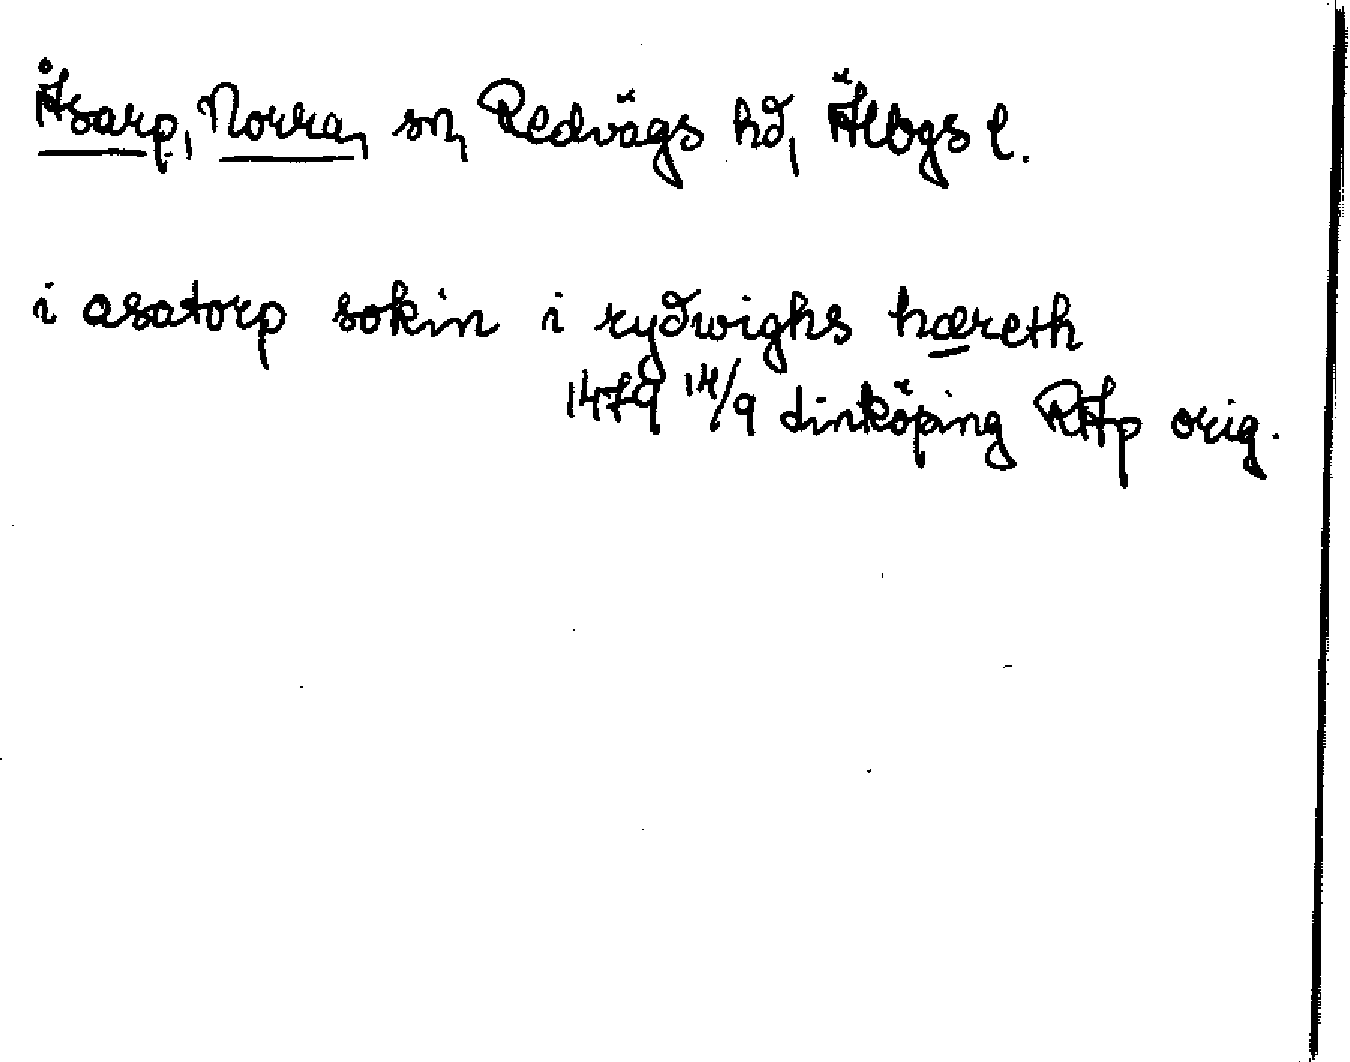 Åsarp, Norra, sn, Redvägs hd, Älvbgs l.
i asatorp sokin i rydwighs hæreth
1479 14/9 Linköping RAp orig.